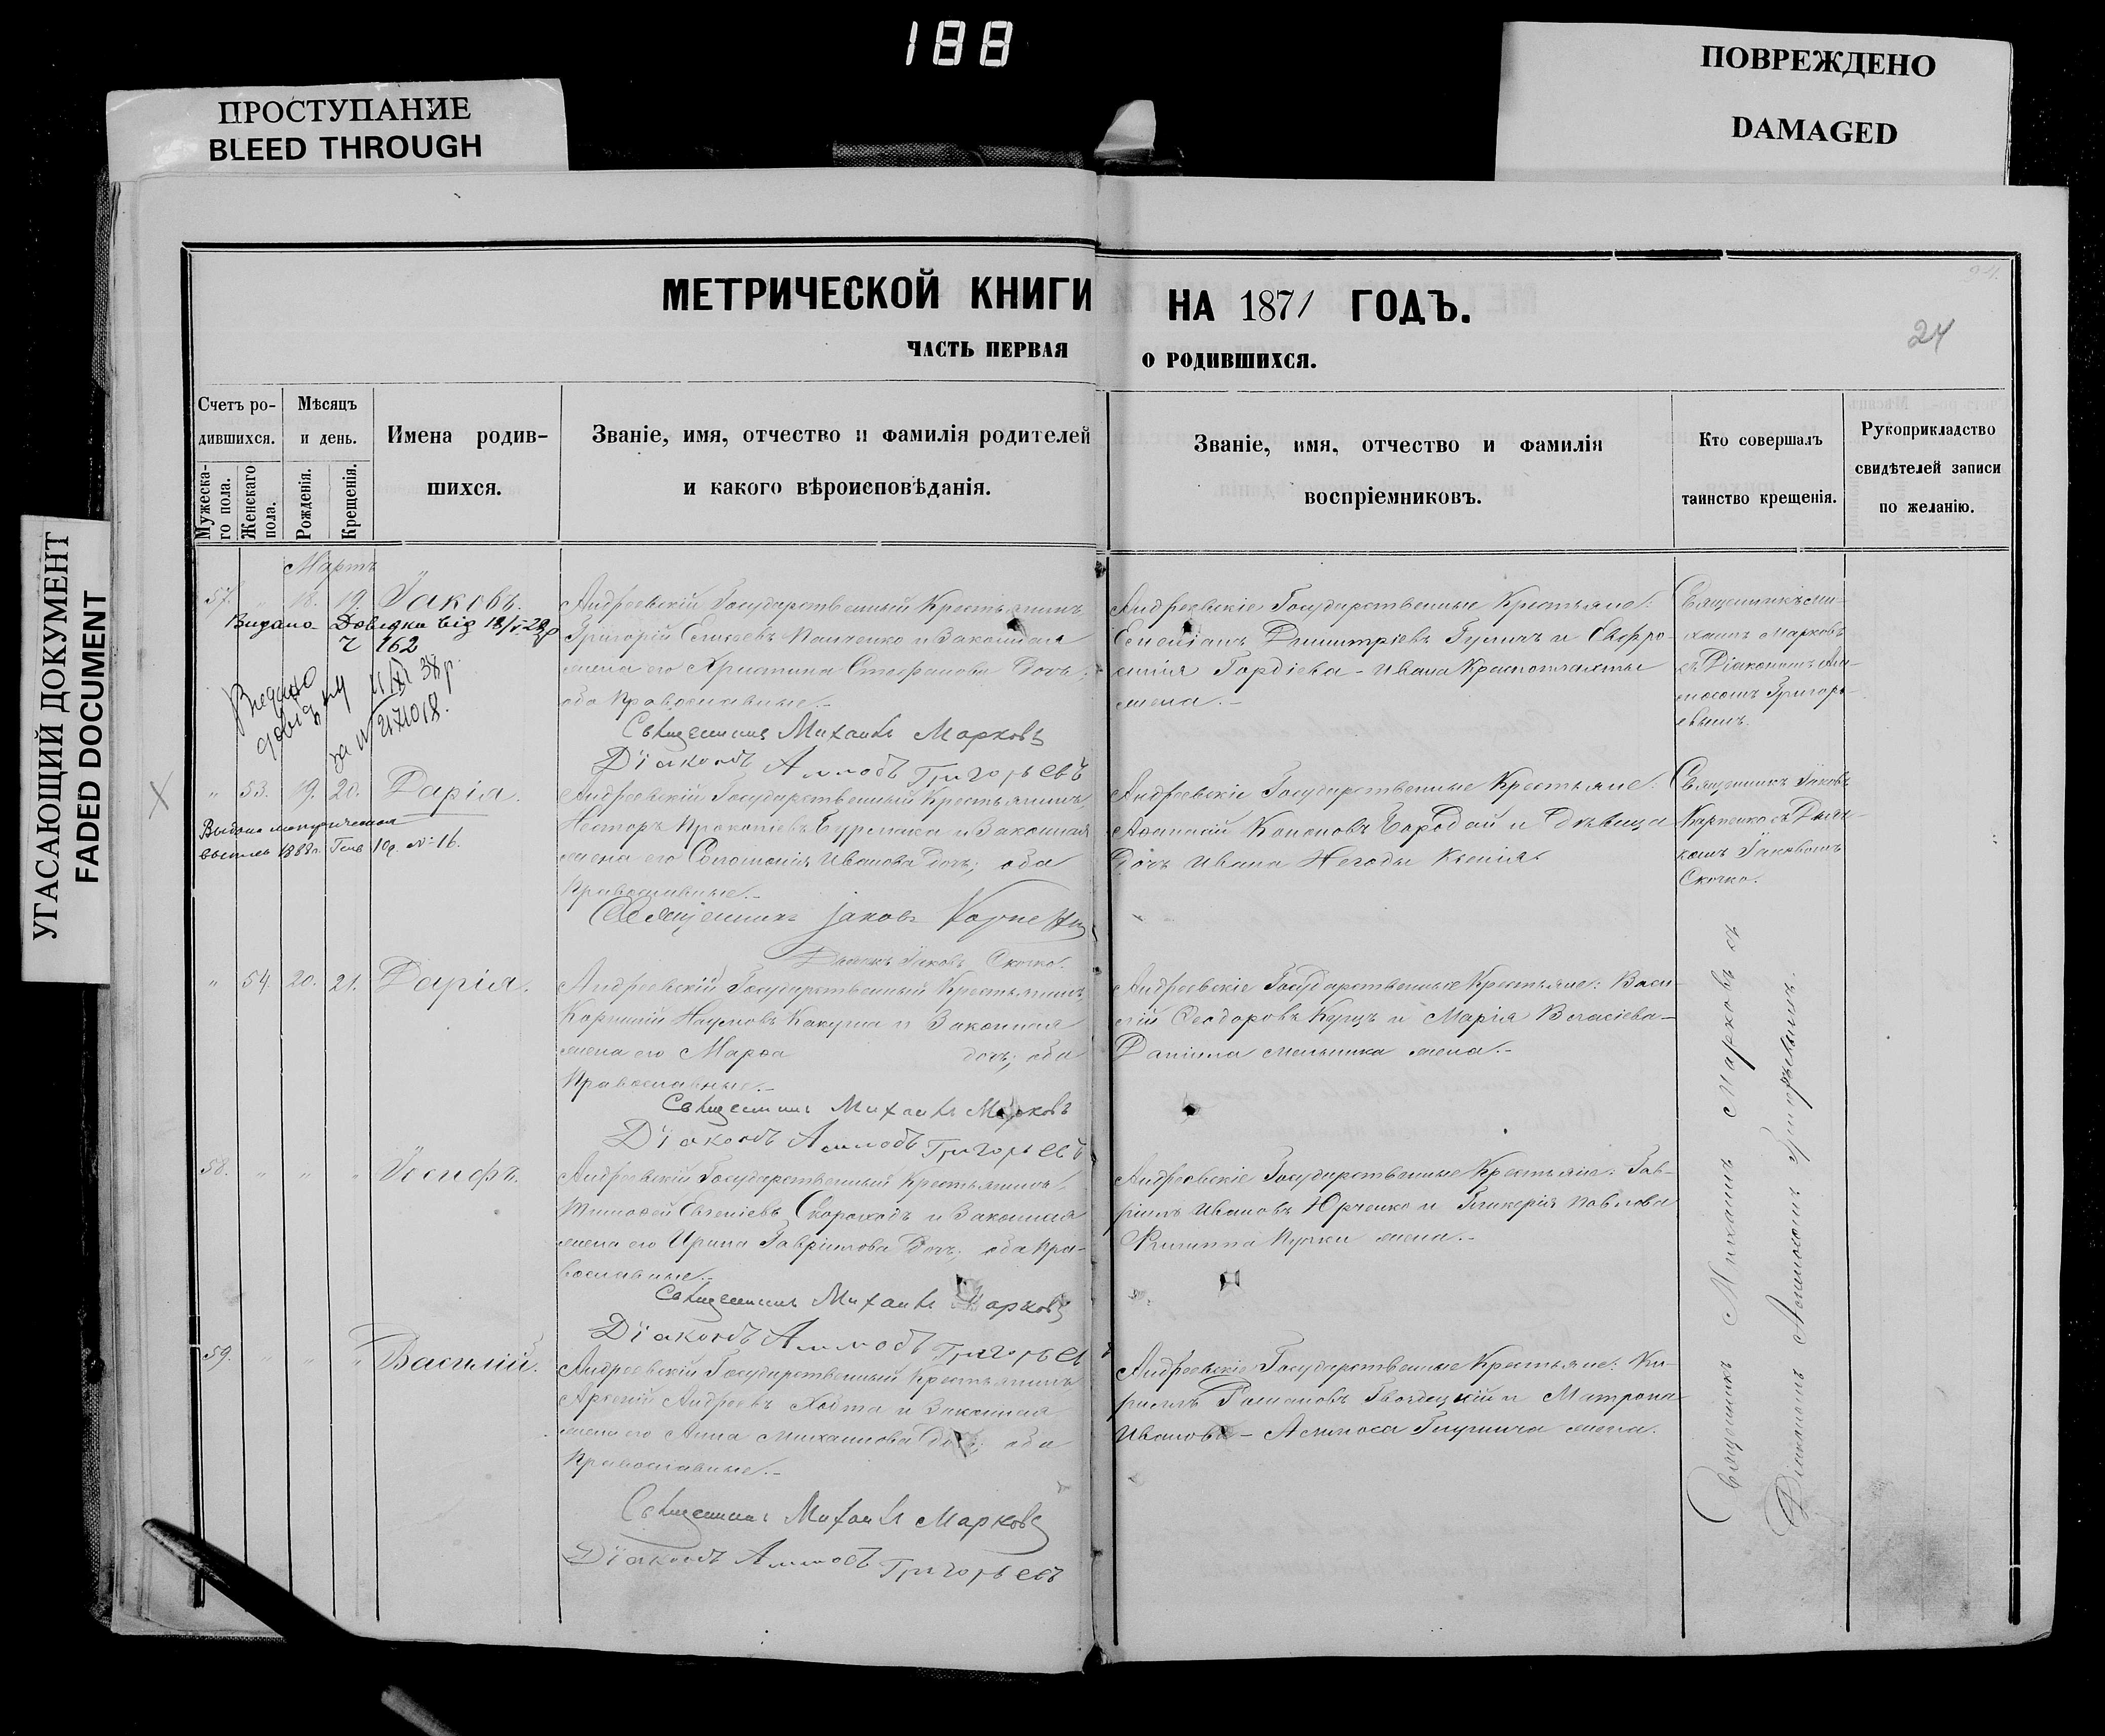 188
ПРОСТУПАНИЕ
BLEED THROUGH
ПОВРЕЖДЕНО
DAMAGED
УГАСАЮЩИЙ ДОКУМЕНТ
FADED DOCUMENT
МЕТРИЧЕСКОЙ КНИГИ НА 1871 ГОДЪ.
24
ЧАСТЬ ПЕРВАЯ О РОДИВШИХСЯ.
Счетъ ро-
дившихся.
Мужеска-
го пола.
Женскаго
пола.
Мѣсяцъ
и день.
Рожденія.
Крещенія.
Имена родив-
шихся.
Званіе, имя, отчество и фамилія родителей
и какого вѣроисповѣданія.
Званіе, имя, отчество и фамилія
воспріемниковъ.
Кто совершалъ
таинство крещенія.
Рукоприкладство
свидѣтелей записи
по желанію.
Мартъ
57. " 18. 19. Іаковъ.
Видано Довідка від 18/
162
Видано
довідку
38 р.
за №
Андреевскій Государственный Крестьянинъ
Григорій Панченко и Законная
жена его Христина Стефанова дочь;
оба Православные.-
Священникъ Михаилъ Марковъ
Діаконъ Аммосъ Григорьевъ
Андреевскіе Государственные Крестьяне:
Димитріевъ и Евфро-
Гордіева - Ивана
жена.-
Священникъ Ми-
хаилъ Марковъ
съ Діакономъ Ам-
мосомъ Григорь-
евымъ.
" 53. 19. 20. Дарія.
Выдана метрическая
выпись 1888 г. Генв. 10 д. № 16.
Андреевскій Государственный Крестьянинъ
Несторъ Прокопіевъ и Законная
жена его Соломонія Иванова дочь; оба
Православные.-
Священникъ Іаковъ Карпенко
Дьякъ Іаковъ Скочко.
Андреевскіе Государственные Крестьяне:
Афанасій Кононовъ Бородай и Дѣвица
дочь Ивана Негоды Ксенія
Священникъ Іаковъ
Карпенко съ Дьяч-
комъ Іаковомъ
Скочко.
" 54. 20. 21. Дарія.
Андреевскій Государственный Крестьянинъ
Корнилій Наумовъ Какуша и Законная
жена его Марфа дочь; оба
Православные.-
Священникъ Михаилъ Марковъ
Діаконъ Аммосъ Григорьевъ
Андреевскіе Государственные Крестьяне: Васи-
лій Феодоровъ и Марія Власіева-
Даніила Мельника жена.-
58. " " " Іосифъ.
Андреевскій Государственный Крестьянинъ
Тимофей Евгеніевъ Скороходъ и Законная
жена его Ирина Гавріилова дочь; оба Пра-
вославные.-
Священникъ Михаилъ Марковъ
Діаконъ Аммосъ Григорьевъ
Андреевскіе Государственные Крестьяне: Гав-
ріилъ Ивановъ Юрченко и Гликерія Павлова
Филиппа жена.-
59. " " " Василій.
Андреевскій Государственный Крестьянинъ
Арсеній Андреевъ и Законная
жена его Анна Михайлова дочь; оба
Православные.-
Священникъ Михаилъ Марковъ
Діаконъ Аммосъ Григорьевъ
Андреевскіе Государственные Крестьяне: Ки-
риллъ Романовъ Гвоздецкій и Матрона
Иванова - Аммоса жена.
Священникъ Михаилъ Марковъ съ
Діакономъ Аммосомъ Григорьевымъ.